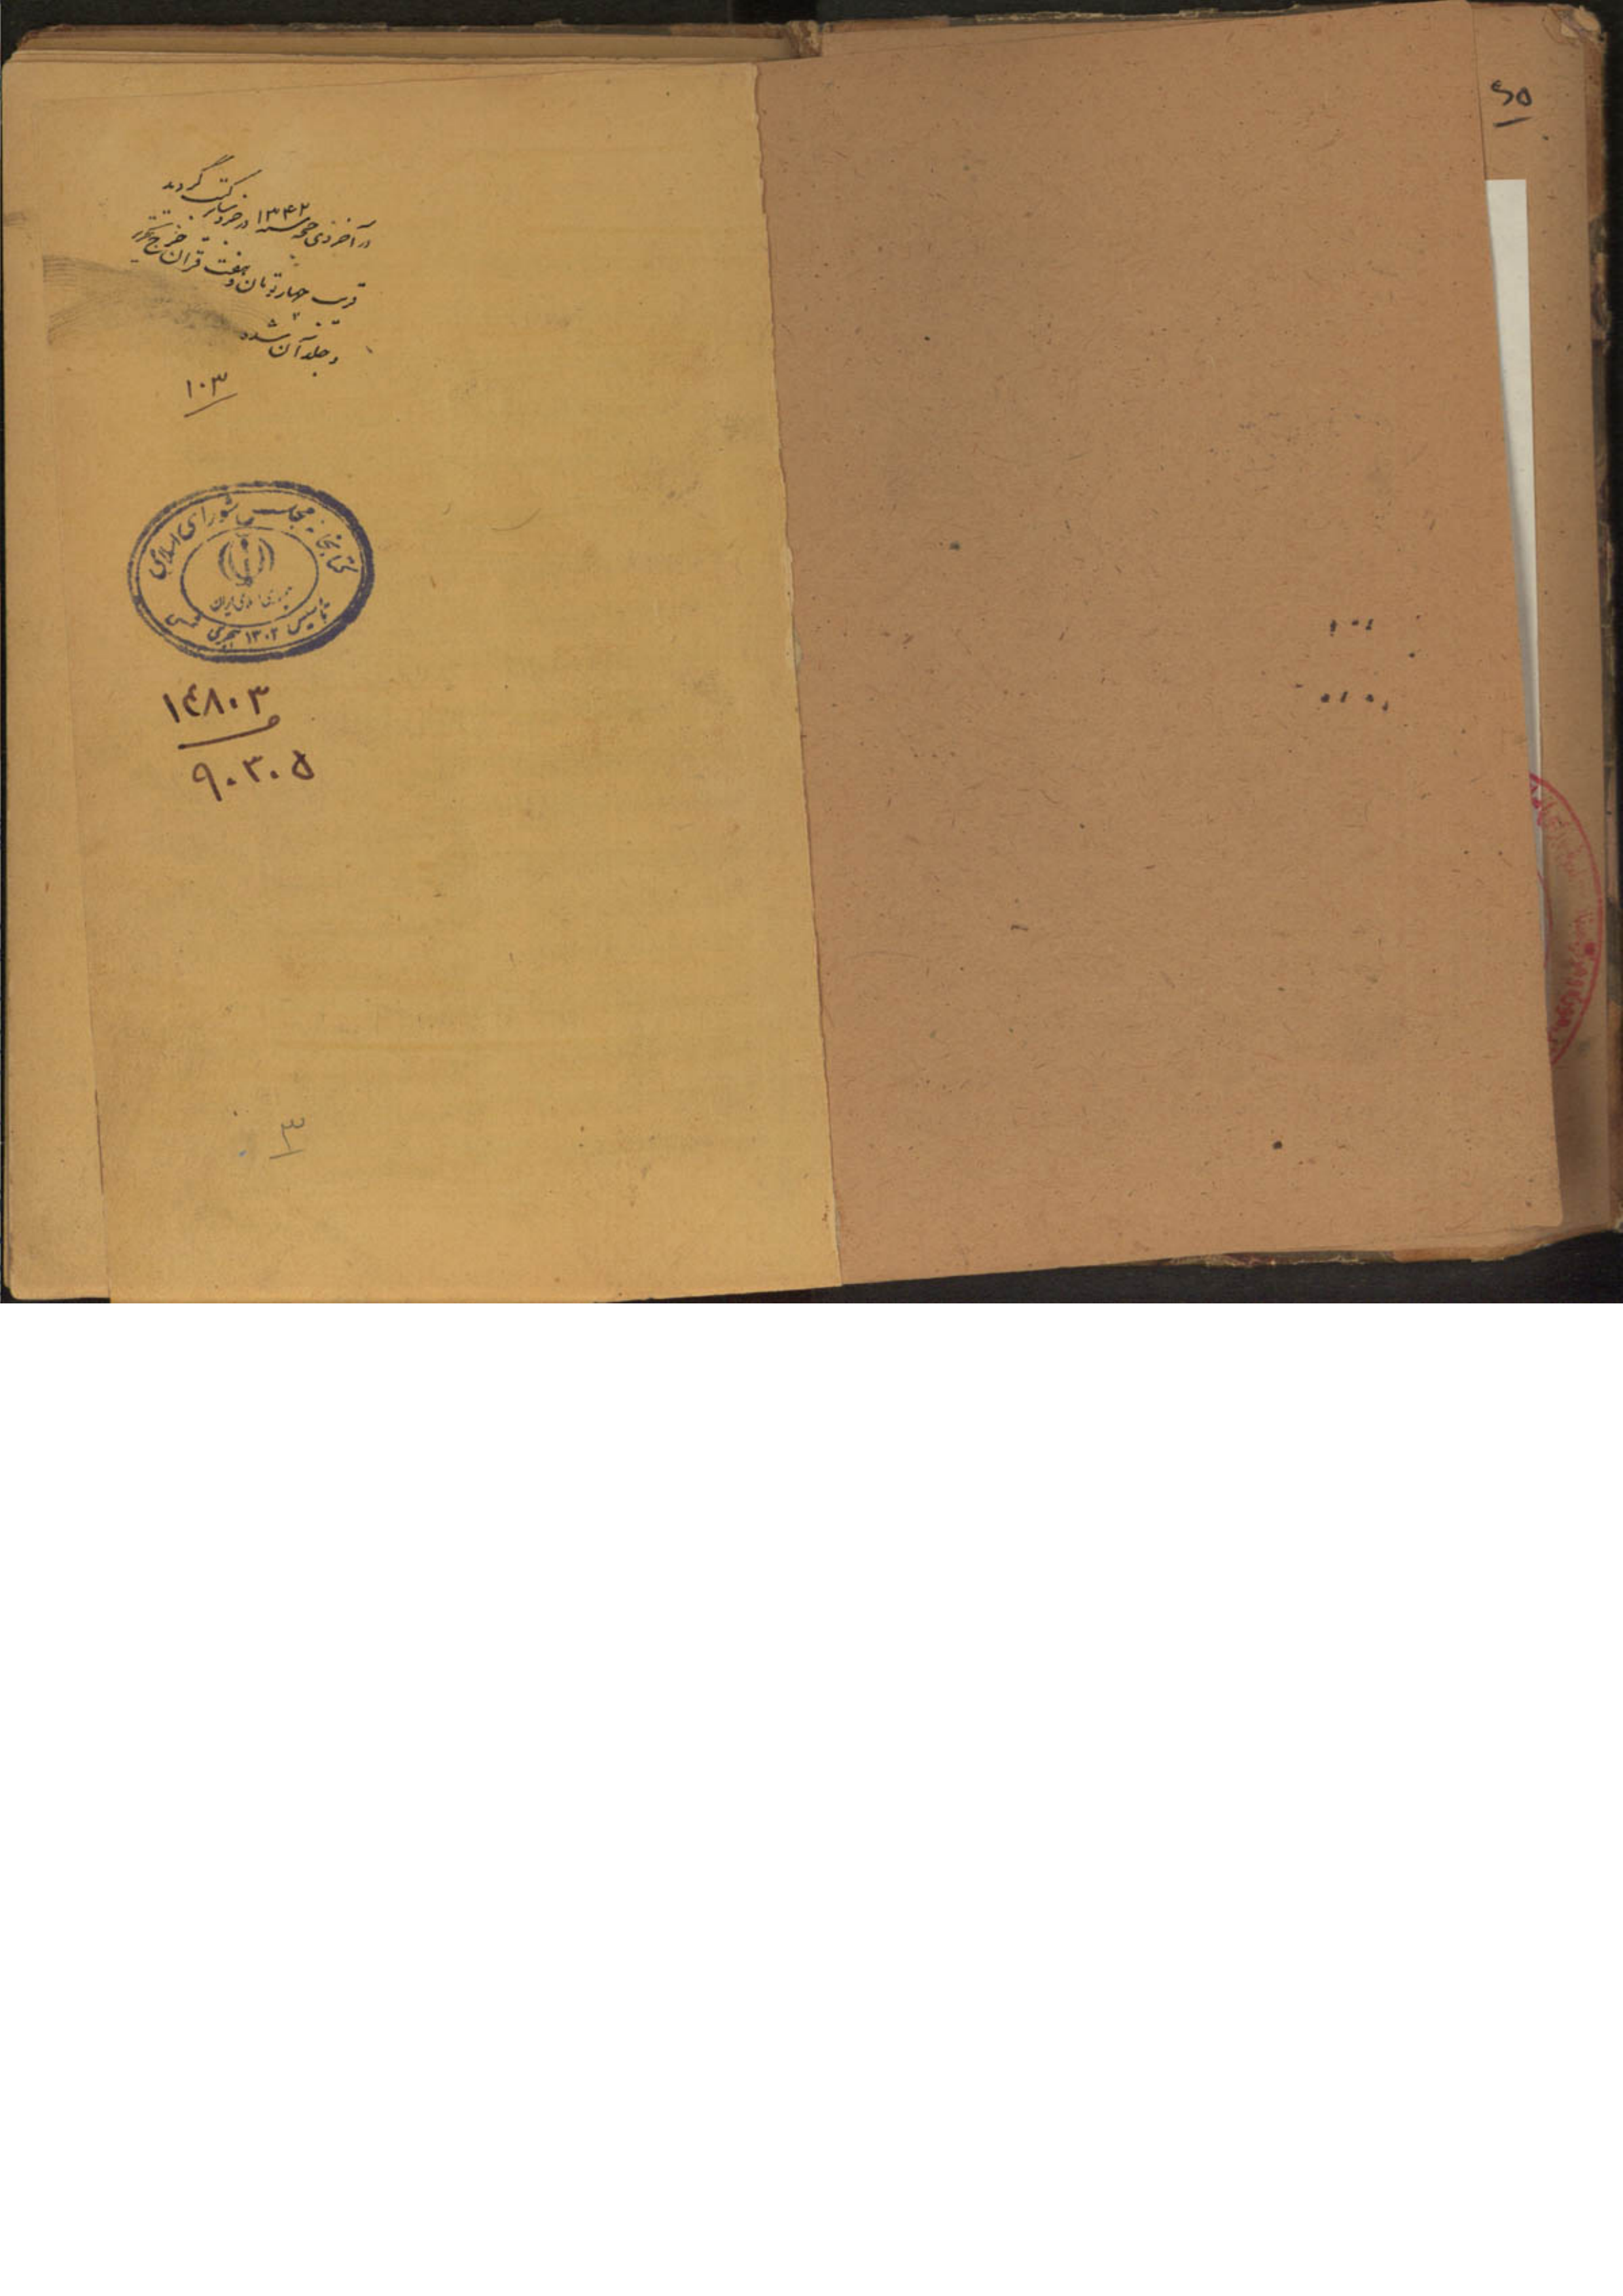 ۶۵
در آخر ذی حجه سنه ۱۳۴۲ در جزو سایر کتب گردید
قریب چهار تومان و هفت قران خرج تحریر
و جلد آن شد
۱۰۳
کتابخانه مجلس شورای اسلامی
جمهوری اسلامی ایران
تأسیس ۱۳۰۲ هجری شمسی
۱۴۸۰۳
۹۰۳۰۵
۳